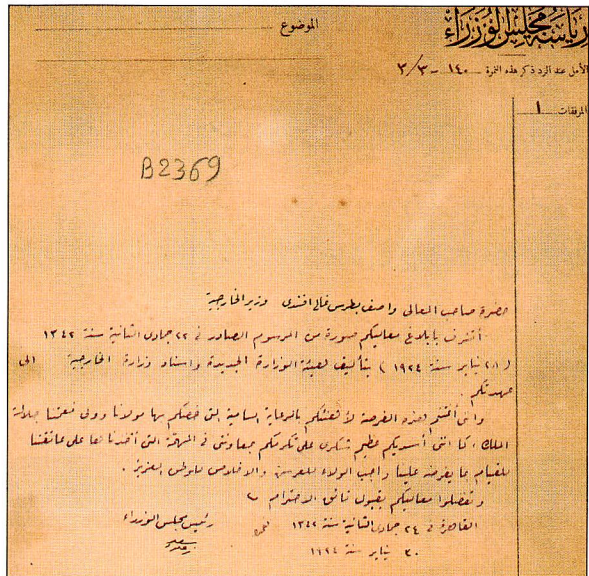 رياسة مجلس الوزراء
الموضوع
الأمل عند الرد ذكر هذه النمرة ١٤٠ - ٣/٣
المرفقات ١
B2369
حضرة صاحب المعالى واصف بطرس غالى افندى وزير الخارجية
أتشرف بإبلاغ معاليكم صورة من المرسوم الصادر فى ٢٢ جمادى الثانية سنة ١٣٤٢
(٢٨ يناير سنة ١٩٢٤) بتأليف هيئة الوزارة الجديدة واسناد وزارة الخارجية الى
عهدتكم
وانى أغتنم هذه الفرصة لأهنئكم بالرعاية السامية التى خصكم بها مولانا وولى نعمتنا جلالة
الملك، كما انى أسديكم عظيم شكرى على تكرمكم بمعاونتى فى المهمة التى أخذناها على عاتقنا
للقيام بما يفرضه علينا واجب الولاء للعرش والاخلاص للوطن العزيز .
وتفضلوا معاليكم بقبول فائق الاحترام
القاهرة فى ٢٤ جمادى الثانية سنة ١٣٤٢
رئيس مجلس الوزراء
٣٠ يناير سنة ١٩٢٤
سعد